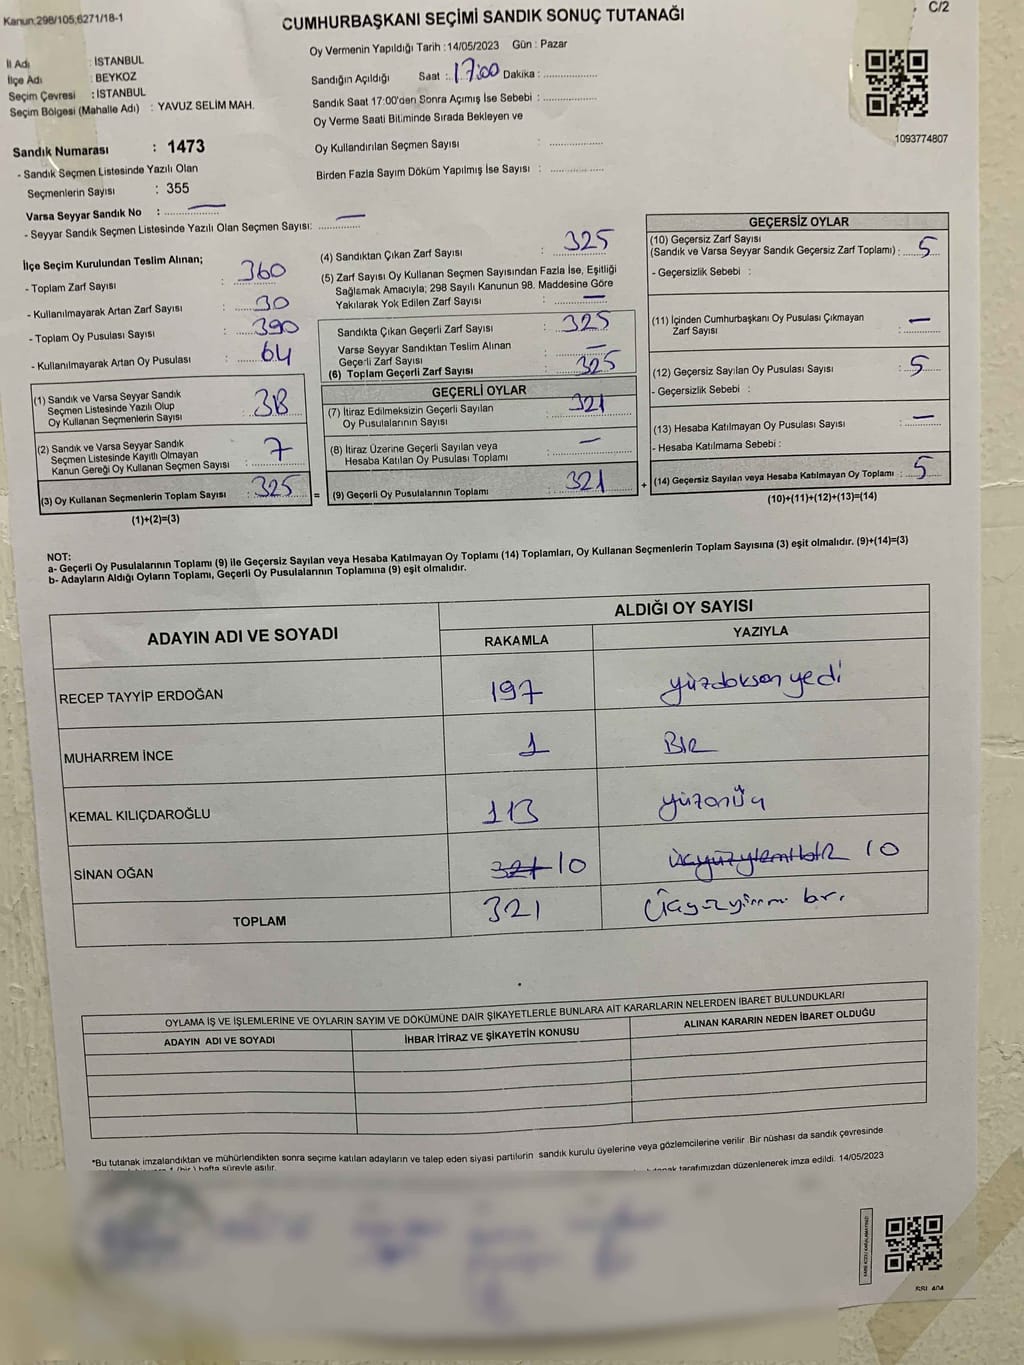 Kanun;298/105;6271/18-1
C/2
CUMHURBAŞKANI SEÇİMİ SANDIK SONUÇ TUTANAĞI
Oy Vermenin Yapıldığı Tarih :14/05/2023 Gün : Pazar
İl Adı : İSTANBUL
İlçe Adı : BEYKOZ
Seçim Çevresi : İSTANBUL
Seçim Bölgesi (Mahalle Adı) : YAVUZ SELİM MAH.
Sandığın Açıldığı Saat : 17:00 Dakika : ..............
Sandık Saat 17:00'den Sonra Açımış İse Sebebi : ..............
Oy Verme Saati Bitiminde Sırada Bekleyen ve
Oy Kullandırılan Seçmen Sayısı : ..............
Birden Fazla Sayım Döküm Yapılmış İse Sayısı : ..............
1093774807
Sandık Numarası : 1473
- Sandık Seçmen Listesinde Yazılı Olan
Seçmenlerin Sayısı : 355
Varsa Seyyar Sandık No : —
- Seyyar Sandık Seçmen Listesinde Yazılı Olan Seçmen Sayısı: —
İlçe Seçim Kurulundan Teslim Alınan;
- Toplam Zarf Sayısı : 360
- Kullanılmayarak Artan Zarf Sayısı : 30
- Toplam Oy Pusulası Sayısı : 390
- Kullanılmayarak Artan Oy Pusulası : 64
(1) Sandık ve Varsa Seyyar Sandık
Seçmen Listesinde Yazılı Olup
Oy Kullanan Seçmenlerin Sayısı : 318
(2) Sandık ve Varsa Seyyar Sandık
Seçmen Listesinde Kayıtlı Olmayan
Kanun Gereği Oy Kullanan Seçmen Sayısı : 7
(3) Oy Kullanan Seçmenlerin Toplam Sayısı : 325
(1)+(2)=(3)
(4) Sandıktan Çıkan Zarf Sayısı : 325
(5) Zarf Sayısı Oy Kullanan Seçmen Sayısından Fazla İse, Eşitliği
Sağlamak Amacıyla; 298 Sayılı Kanunun 98. Maddesine Göre
Yakılarak Yok Edilen Zarf Sayısı : —
Sandıkta Çıkan Geçerli Zarf Sayısı : 325
Varse Seyyar Sandıktan Teslim Alınan
Geçerli Zarf Sayısı : —
(6) Toplam Geçerli Zarf Sayısı : 325
GEÇERLİ OYLAR
(7) İtiraz Edilmeksizin Geçerli Sayılan
Oy Pusulalarının Sayısı : 321
(8) İtiraz Üzerine Geçerli Sayılan veya
Hesaba Katılan Oy Pusulası Toplamı : —
= (9) Geçerli Oy Pusulalarının Toplamı : 321
GEÇERSİZ OYLAR
(10) Geçersiz Zarf Sayısı
(Sandık ve Varsa Seyyar Sandık Geçersiz Zarf Toplamı) : 5
- Geçersizlik Sebebi :
(11) İçinden Cumhurbaşkanı Oy Pusulası Çıkmayan
Zarf Sayısı : —
(12) Geçersiz Sayılan Oy Pusulası Sayısı : 5
- Geçersizlik Sebebi :
(13) Hesaba Katılmayan Oy Pusulası Sayısı : —
- Hesaba Katılmama Sebebi :
+ (14) Geçersiz Sayılan veya Hesaba Katılmayan Oy Toplamı : 5
(10)+(11)+(12)+(13)=(14)
NOT:
a- Geçerli Oy Pusulalarının Toplamı (9) ile Geçersiz Sayılan veya Hesaba Katılmayan Oy Toplamı (14) Toplamları, Oy Kullanan Seçmenlerin Toplam Sayısına (3) eşit olmalıdır. (9)+(14)=(3)
b- Adayların Aldığı Oyların Toplamı, Geçerli Oy Pusulalarının Toplamına (9) eşit olmalıdır.
ADAYIN ADI VE SOYADI ALDIĞI OY SAYISI
RAKAMLA YAZIYLA
RECEP TAYYİP ERDOĞAN 197 yüzdoksanyedi
MUHARREM İNCE 1 BİR
KEMAL KILIÇDAROĞLU 113 yüzonüç
SİNAN OĞAN 321 10 üçyüzyirmibir 10
TOPLAM 321 üçyüzyirmi bir
OYLAMA İŞ VE İŞLEMLERİNE VE OYLARIN SAYIM VE DÖKÜMÜNE DAİR ŞİKAYETLERLE BUNLARA AİT KARARLARIN NELERDEN İBARET BULUNDUKLARI
ADAYIN ADI VE SOYADI İHBAR İTİRAZ VE ŞİKAYETİN KONUSU ALINAN KARARIN NEDEN İBARET OLDUĞU
*Bu tutanak imzalandıktan ve mühürlendikten sonra seçime katılan adayların ve talep eden siyasi partilerin sandık kurulu üyelerine veya gözlemcilerine verilir. Bir nüshası da sandık çevresinde
1 (bir) hafta süreyle asılır. tarafımızdan düzenlenerek imza edildi. 14/05/2023